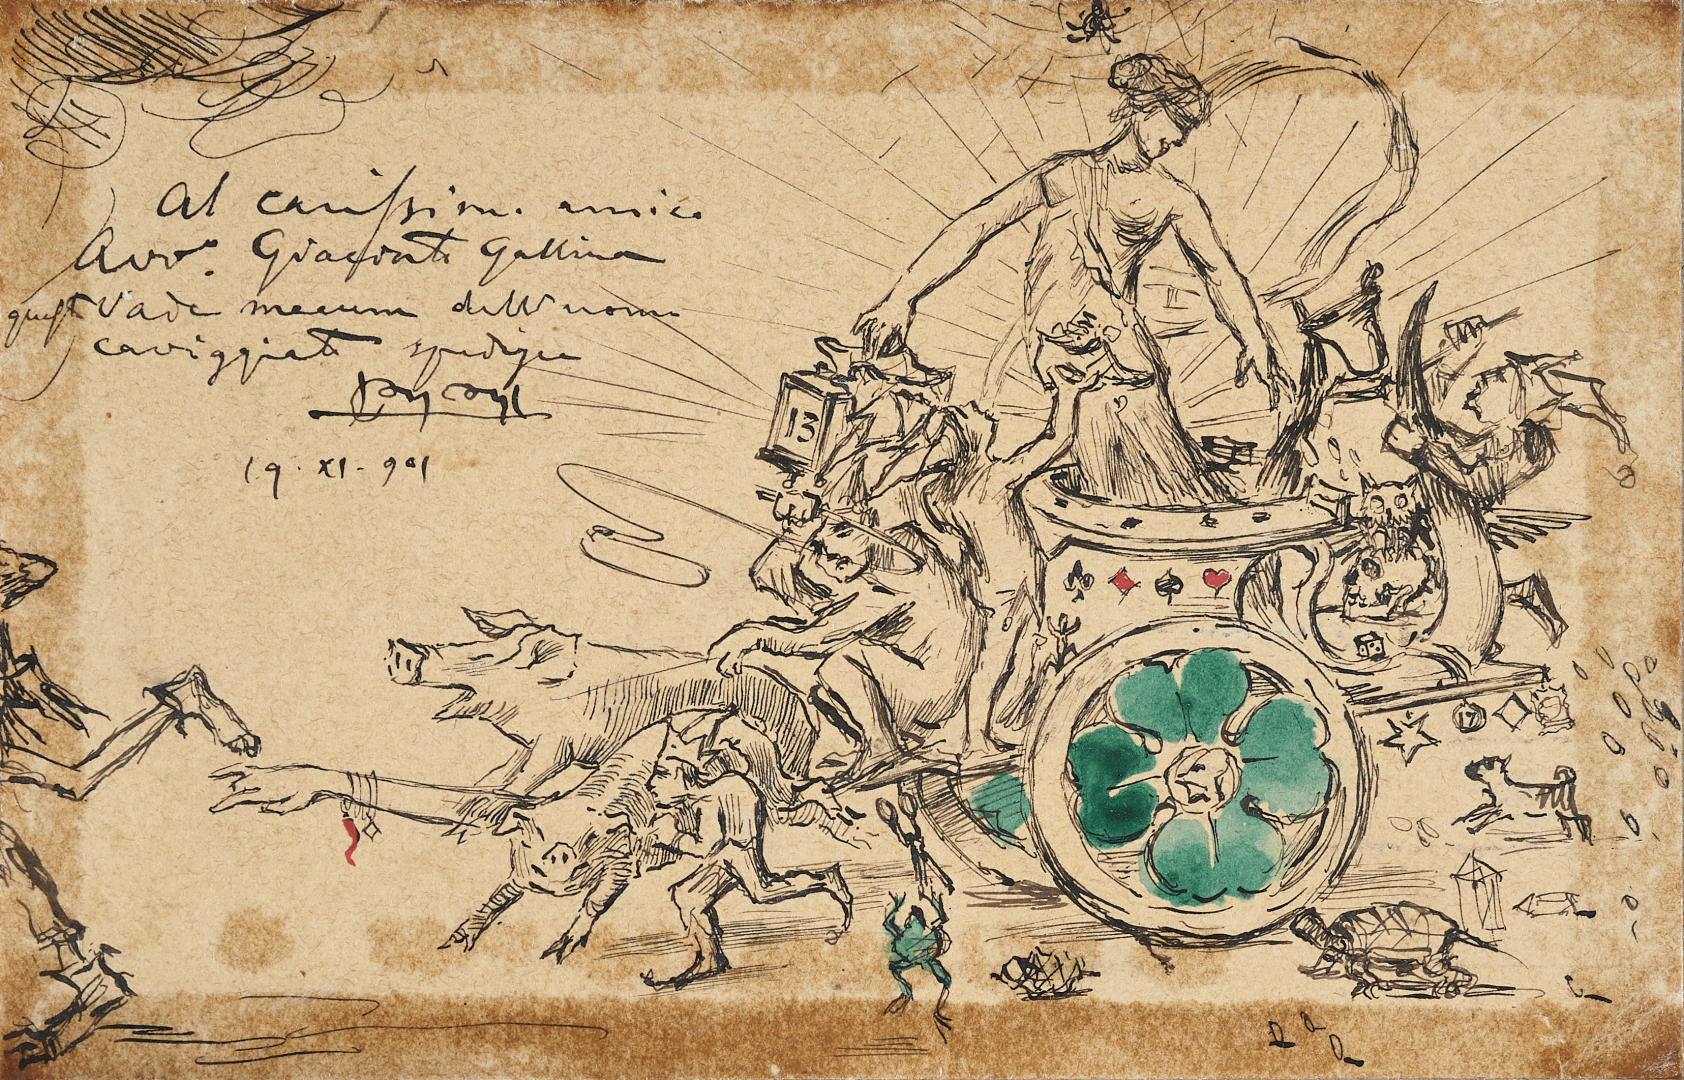 Al carissimo amico
Avvo. Giacinto Gallina
questo Vade mecum dell'uomo
caviggiato
19·XI·901
13
17